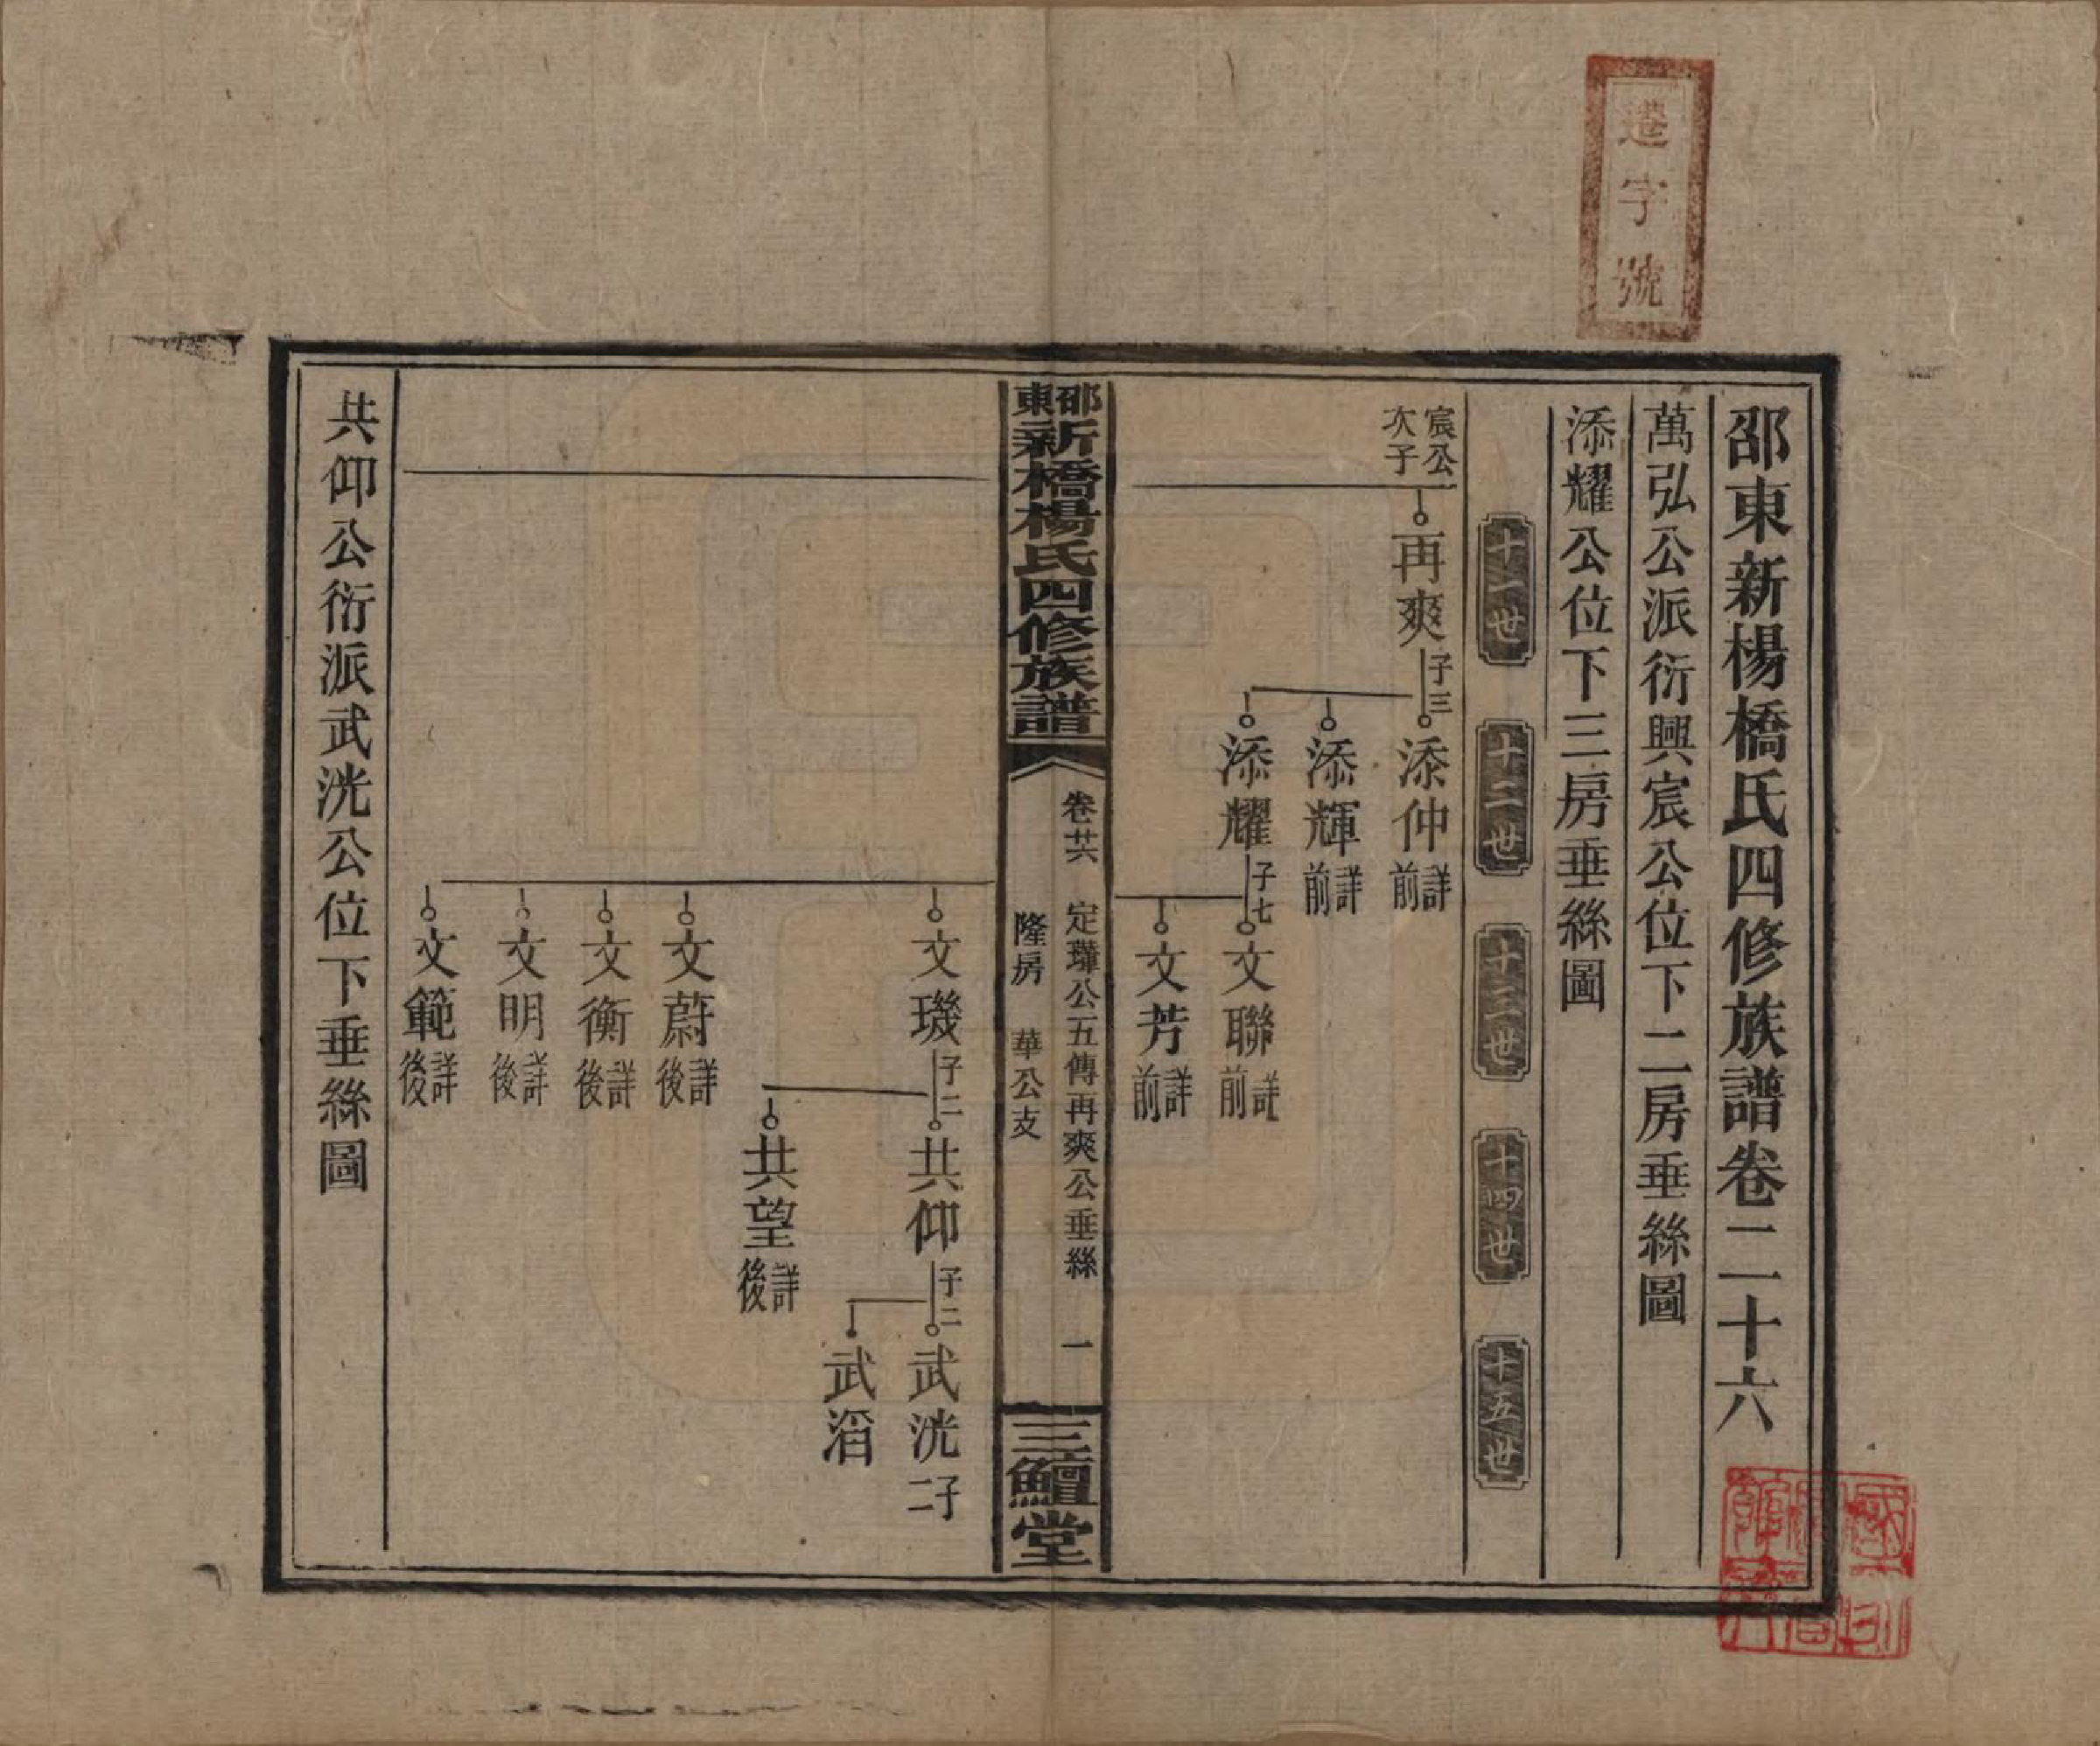 遷字號
邵東新楊橋氏四修族譜卷二十六
萬弘公派衍興宸公位下二房垂絲圖
添耀公位下三房垂絲圖
十一世
十二世
十三世
十四世
十五世
宸公次子
再爽 子三
添仲 詳前
添輝 詳前
添耀 子七
文聯 詳前
文芳 詳前
邵東新橋楊氏四修族譜
卷廿六 定璍公五傳再爽公垂絲 一
隆房 華公支
三鱣堂
文璣 子二
共仰 子二
武洸 子二
武滔
共望 詳後
文蔚 詳後
文衡 詳後
文明 詳後
文範 詳後
共仰公衍派武洸公位下垂絲圖